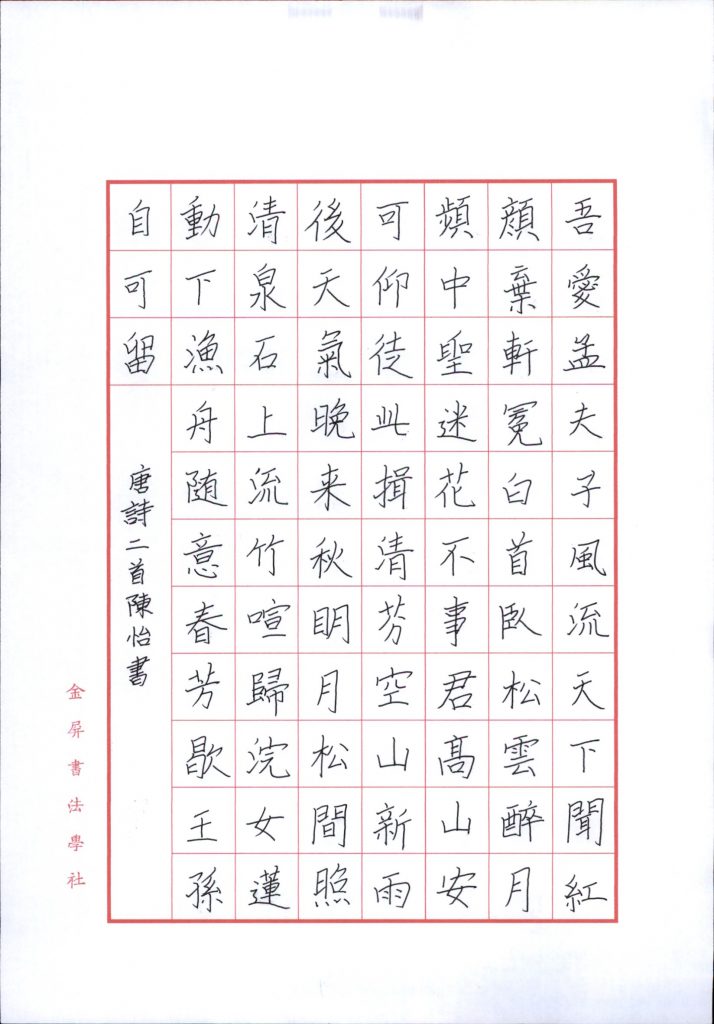 吾愛孟夫子風流天下聞紅
顔棄軒冕白首臥松雲醉月
頻中聖迷花不事君髙山安
可仰徒此揖清芬空山新雨
後天氣晚来秋明月松間照
清泉石上流竹喧歸浣女蓮
動下漁舟随意春芳歇王孫
自可留
唐詩二首陳怡書
金屏書法學社